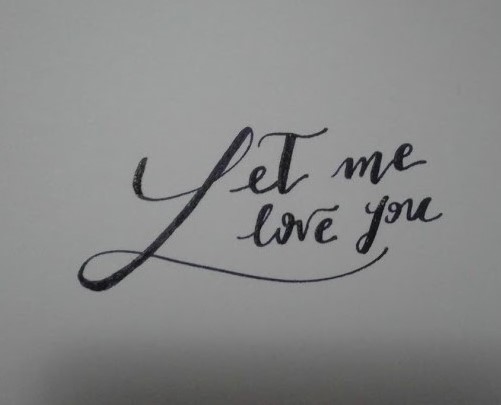 Let me
love you